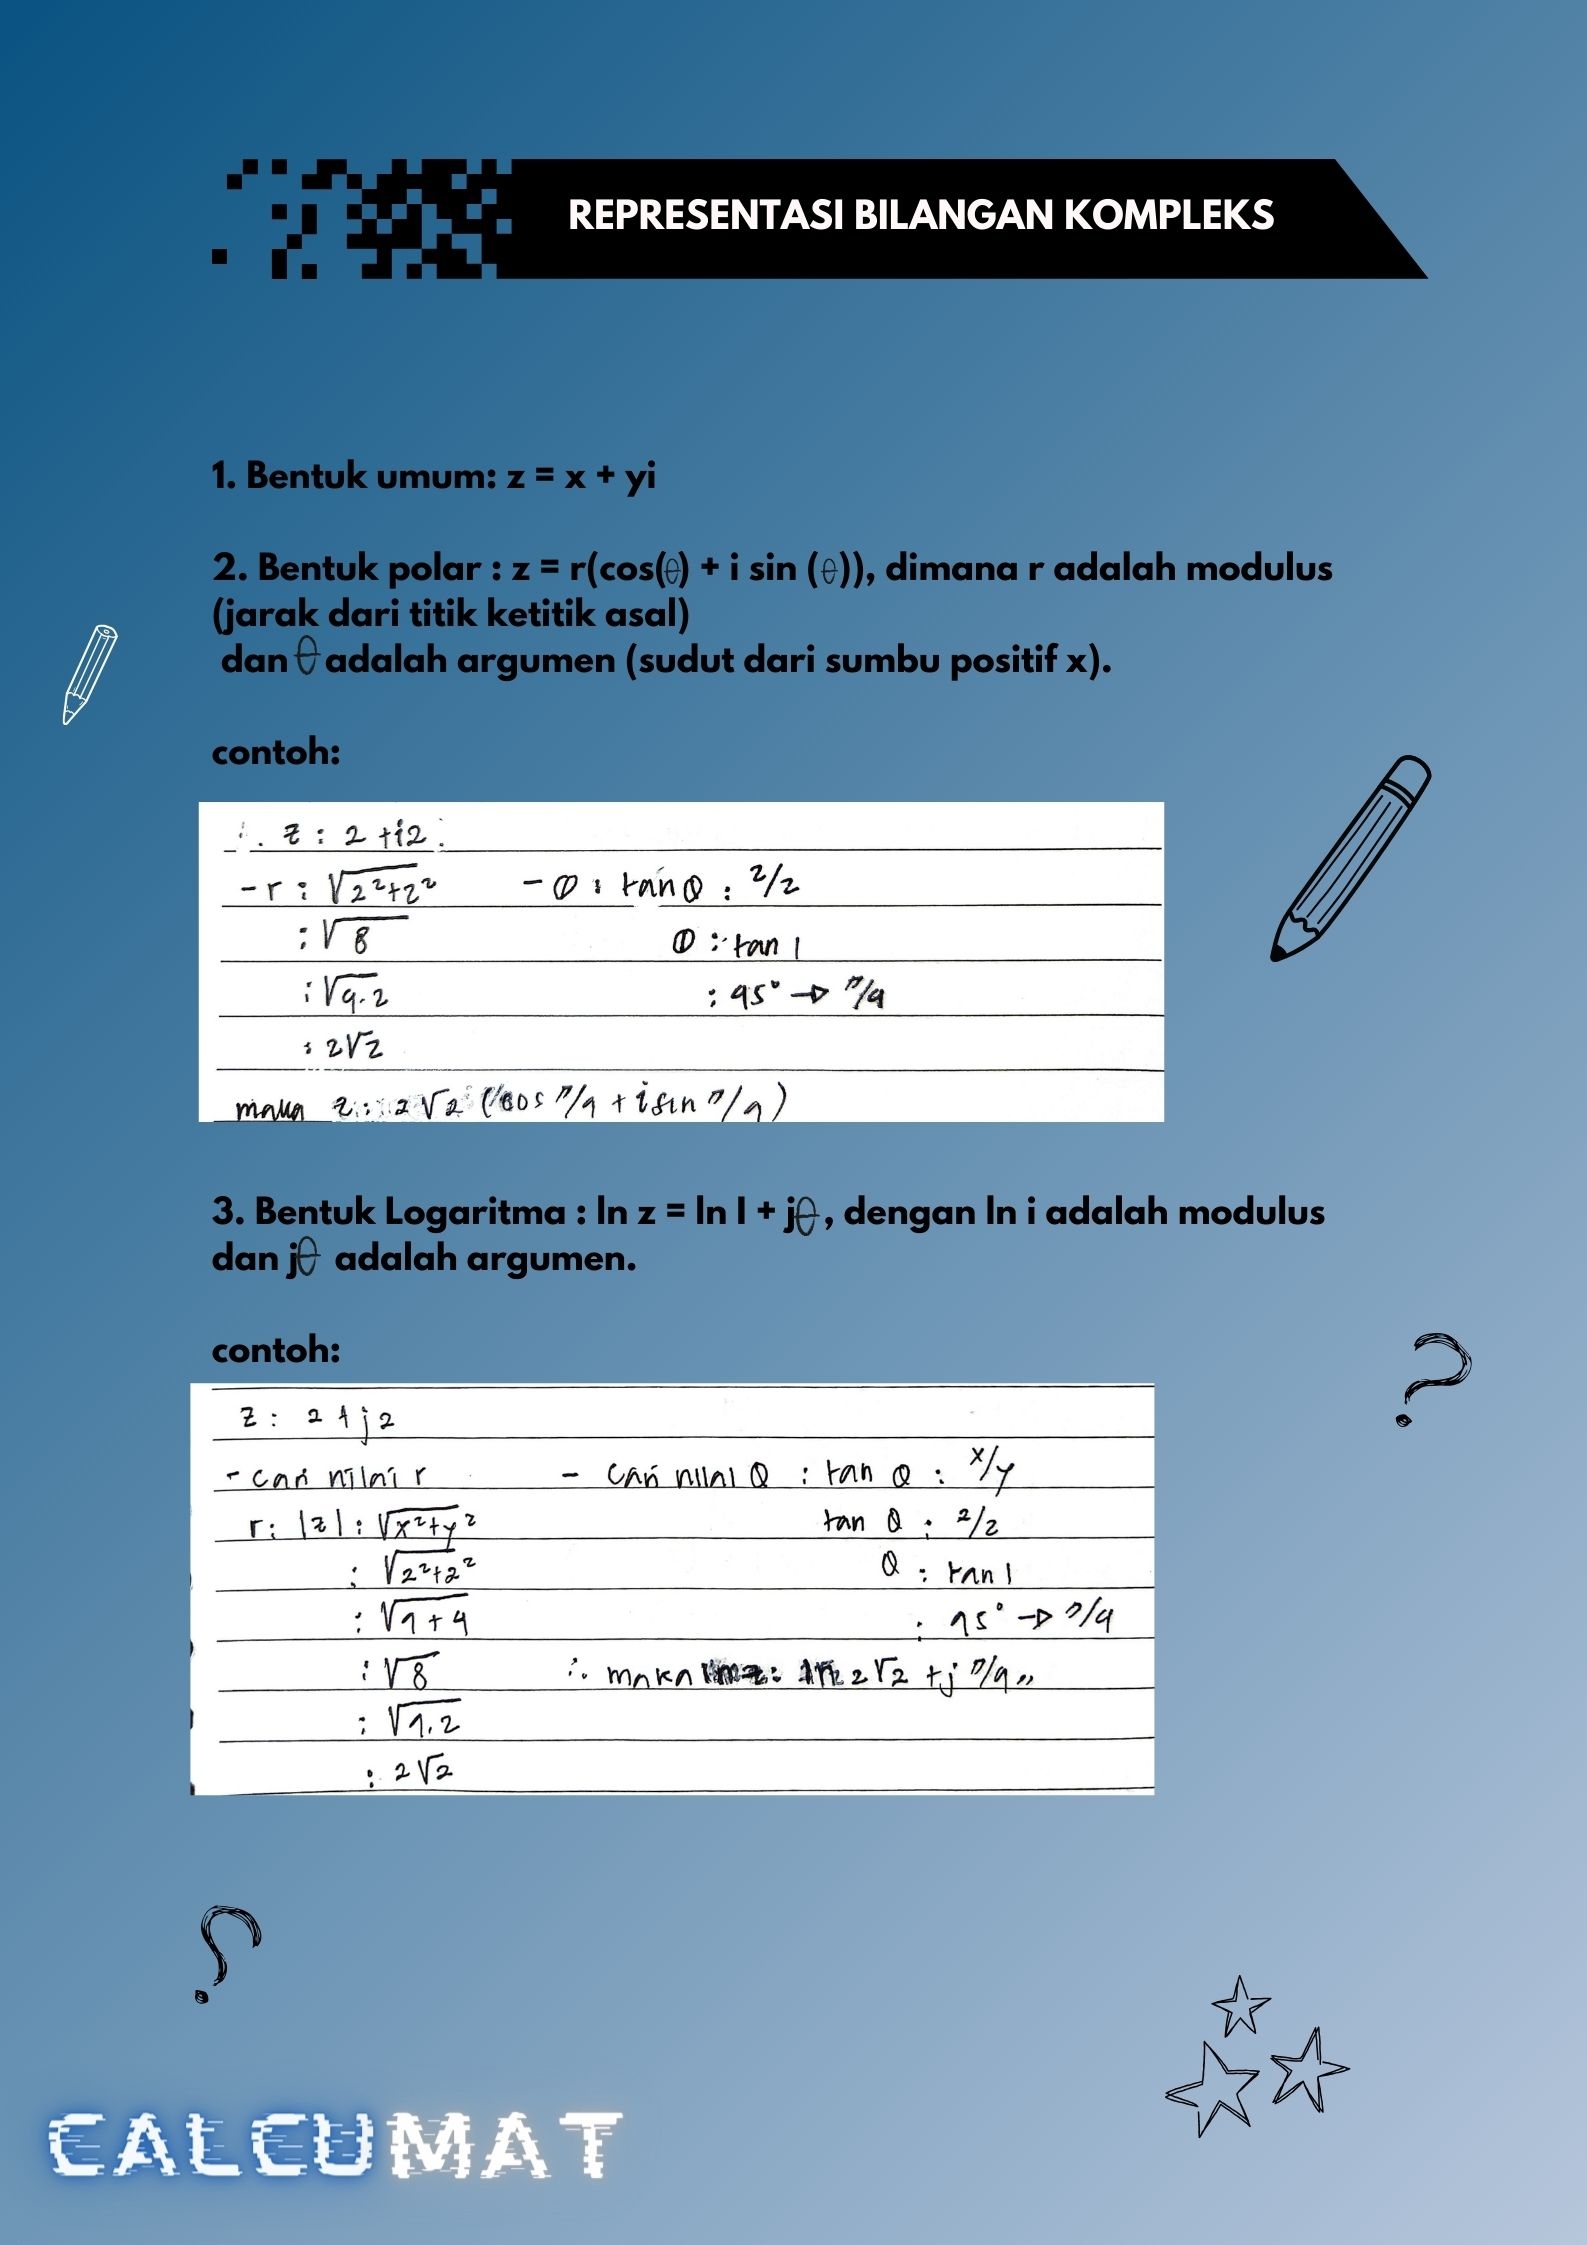 REPRESENTASI BILANGAN KOMPLEKS
1. Bentuk umum: z = x + yi
2. Bentuk polar : z = r(cos(θ) + i sin (θ)), dimana r adalah modulus
(jarak dari titik ketitik asal)
dan θ adalah argumen (sudut dari sumbu positif x).
contoh:
∴ z : 2 + i2
- r : √2²+2² - θ : tan θ : 2/2
: √8 θ : tan 1
: √4.2 : 45° → π/4
: 2√2
maka z : 2√2 (cos π/4 + i sin π/4)
3. Bentuk Logaritma : ln z = ln I + jθ, dengan ln i adalah modulus
dan jθ adalah argumen.
contoh:
z : 2 + j2
- cari nilai r - cari nilai θ : tan θ : x/y
r : |z| : √x²+y² tan θ : 2/2
: √2²+2² θ : tan 1
: √4+4 : 45° → π/4
: √8 ∴ maka ln z : ln 2√2 + j π/4 „
: √4.2
: 2√2
CALCUMAT